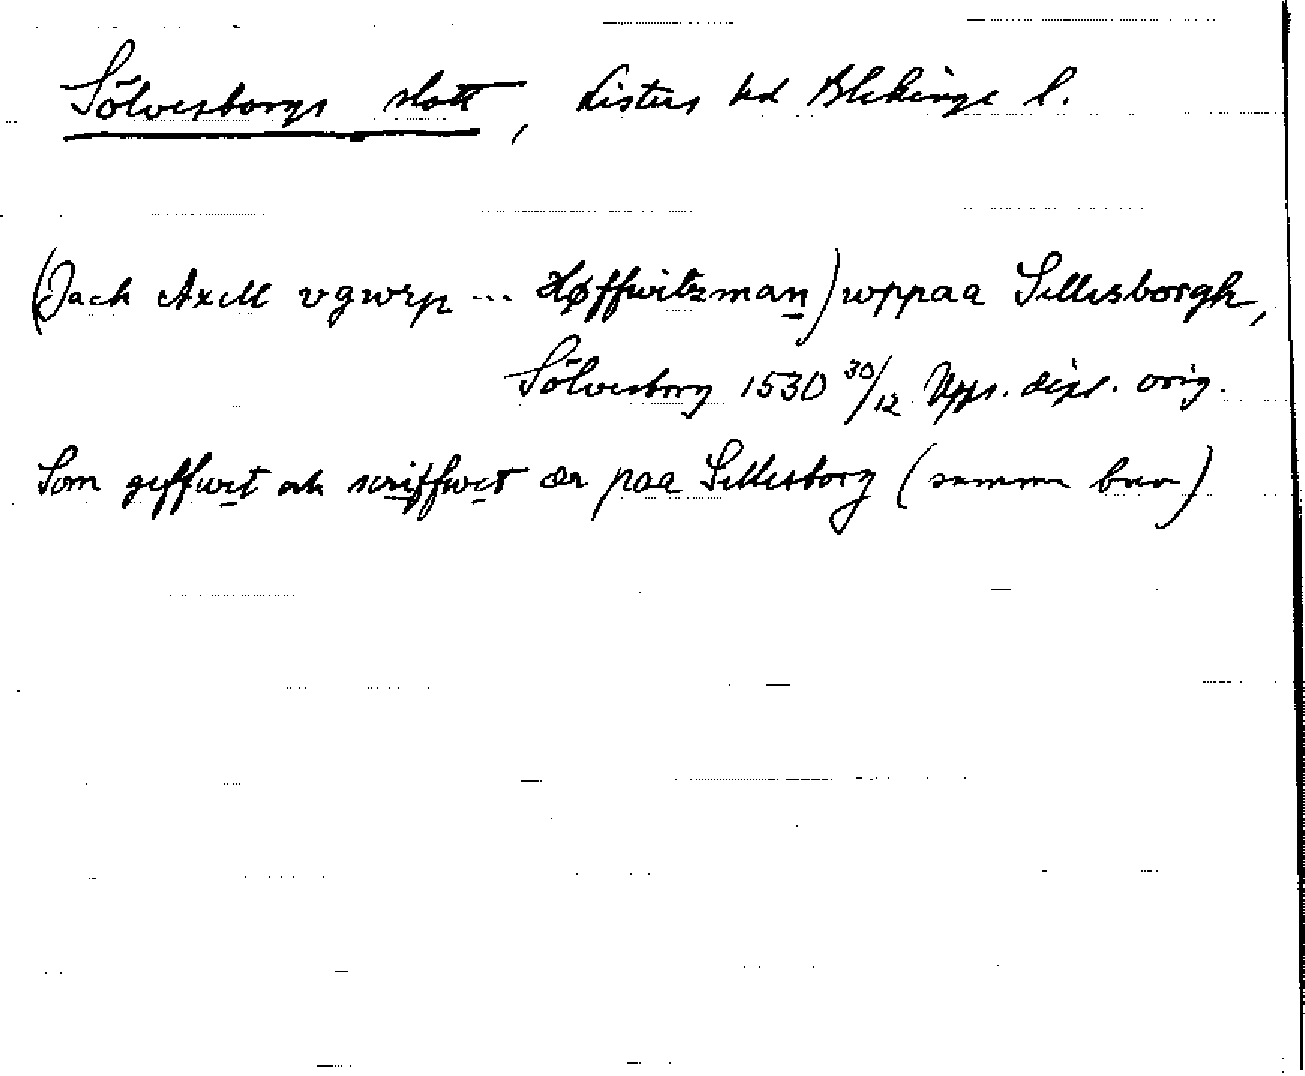 Sölvesborgs slott, Listers hd Blekinge l.
(Jach Axell vgwrp ... Høffwitzman) wppaa Sellesborgh,
Sölvesborg 1530 30/12 Upps. dipl. orig.
Som geffwet och screffwet ær paa Sellesborg (samma brev)